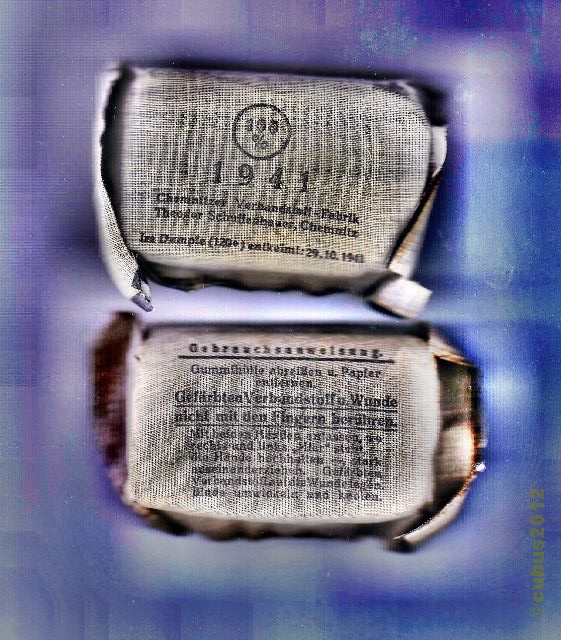 1941
Chemnitzer Verbandstoff-Fabrik
Theodor Chemnitz
Im Dampfe (120°) entkeimt: 29.10.1941
Gebrauchsanweisung.
Gummihülle abreißen u. Papier
entfernen.
Gefärbten Verbandstoff u. Wunde
nicht mit den Fingern berühren.
Mit beiden Händen anfassen, wo
Hände
auseinanderziehen.
Verbandstoff auf die Wunde legen
Binde umwickeln und knoten.
©cubus2012